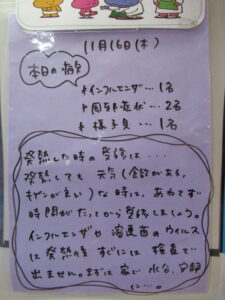 11月16日(木)
本日の病欠
インフルエンザ…1名
胃腸症状…2名
様子見…1名
発熱した時の受診は…
発熱しても 元気(食欲がある、
キゲンが良い)な時は、あわてず
時間がたってから受診しましょう。
インフルエンザや溶連菌のウイルス
は発熱後 すぐには 検査で
出ません。まずは 家で 水分、安静
に…。